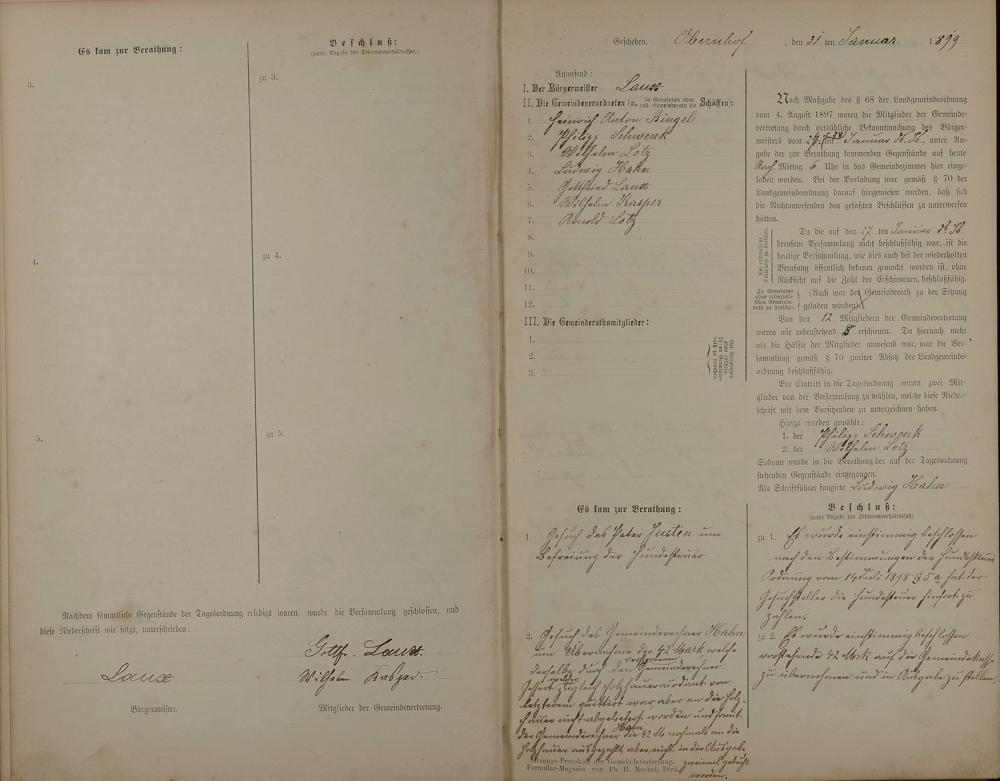 Es kam zur Berathung:
Beschluß:
(unter Angabe des Stimmenverhältnisses.)
3.
zu 3.
4.
zu 4.
5.
zu 5.
Nachdem sämmtliche Gegenstände der Tagesordnung erledigt waren, wurde die Versammlung geschlossen, und
diese Niederschrift wie folgt, unterschrieben:
Gottfr. Laux.
Laux
Wilhelm Kasper.
Bürgermeister.
Mitglieder der Gemeindevertretung.
Geschehen, Obernhof, den 31 ten Januar 1899
Anwesend:
I. Der Bürgermeister Laux
II. Die Gemeindeverordneten (u. in Gemeinden ohne coll. Gemeinderath die Schöffen):
1. Heinrich Anton Bingel
2. Philipp Schwenk
3. Wilhelm Lotz
4. Ludwig Hahn
5. Gottfried Laux
6. Wilhelm Kasper
7. Arnold Lotz
8.
9.
10.
11.
12.
III. Die Gemeinderathsmitglieder:
1.
2.
3.
Nach Maßgabe des § 68 der Landgemeindeordnung
vom 4. August 1897 waren die Mitglieder der Gemeinde-
vertretung durch ortsübliche Bekanntmachung des Bürger-
meisters vom ten Januar ds. Js., unter An-
gabe der zur Berathung kommenden Gegenstände auf heute
Nach Mittag 6 Uhr in das Gemeindezimmer hier einge-
laden worden. Bei der Vorladung war gemäß § 70 der
Landgemeindeordnung darauf hingewiesen worden, daß sich
die Nichtanwesenden den gefaßten Beschlüssen zu unterwerfen
hätten.
Da die auf den 27 ten Januar ds. Js.
berufene Versammlung nicht beschlußfähig war, ist die
heutige Versammlung, wie dies auch bei der wiederholten
Berufung öffentlich bekannt gemacht worden ist, ohne
Rücksicht auf die Zahl der Erschienenen, beschlußfähig.
(Auch war der Gemeinderath zu der Sitzung
geladen worden).
Von den 12 Mitgliedern der Gemeindevertretung
waren wie nebenstehend 8 erschienen. Da hiernach mehr
als die Hälfte der Mitglieder anwesend war, war die Ver-
sammlung gemäß § 70 zweiter Absatz der Landgemeinde-
ordnung beschlußfähig.
Vor Eintritt in die Tagesordnung waren zwei Mit-
glieder von der Versammlung zu wählen, welche diese Nieder-
schrift mit dem Vorsitzenden zu unterzeichnen haben.
Hierzu wurden gewählt:
1. der Philipp Schwenk
2. der Wilhelm Lotz
Sodann wurde in die Berathung der auf der Tagesordnung
stehenden Gegenstände eingegangen.
Als Schriftführer fungirte Ludwig Hahn
Es kam zur Berathung:
1. Gesuch des Peter Justen um
Befreiung der Hundesteuer
2. Gesuch des Gemeinderechner Hahn
um Übernahme der 42 Mark welche
derselbe durch den Gemeinderechner
zugleich Holzhauer von
letzterem quittirt war aber an die Holz-
hauer nicht abgeliefert worden und somit
der Gemeinderechner Hahn die 42 M nochmals an die
Holzhauer ausgezahlt, aber nicht in der Ausgabe
zweimal gebucht
worden.
Beschluß:
(unter Angabe des Stimmenverhältnisses)
zu 1. Es wurde einstimmig beschlossen
nach den Bestimmungen der Hundesteuer
Ordnung vom 14 Juli 1898 § 5 a hat der
Gesuchsteller die Hundesteuer hinfort zu
zahlen.
zu 2. Es wurde einstimmig beschlossen
vorstehende 42 Mark auf die Gemeindekasse
zu übernehmen und in Ausgabe zu stellen
Sitzungs-Protokoll der Gemeindevertretung.
Formular-Magazin von Ph. H. Meckel, Diez.